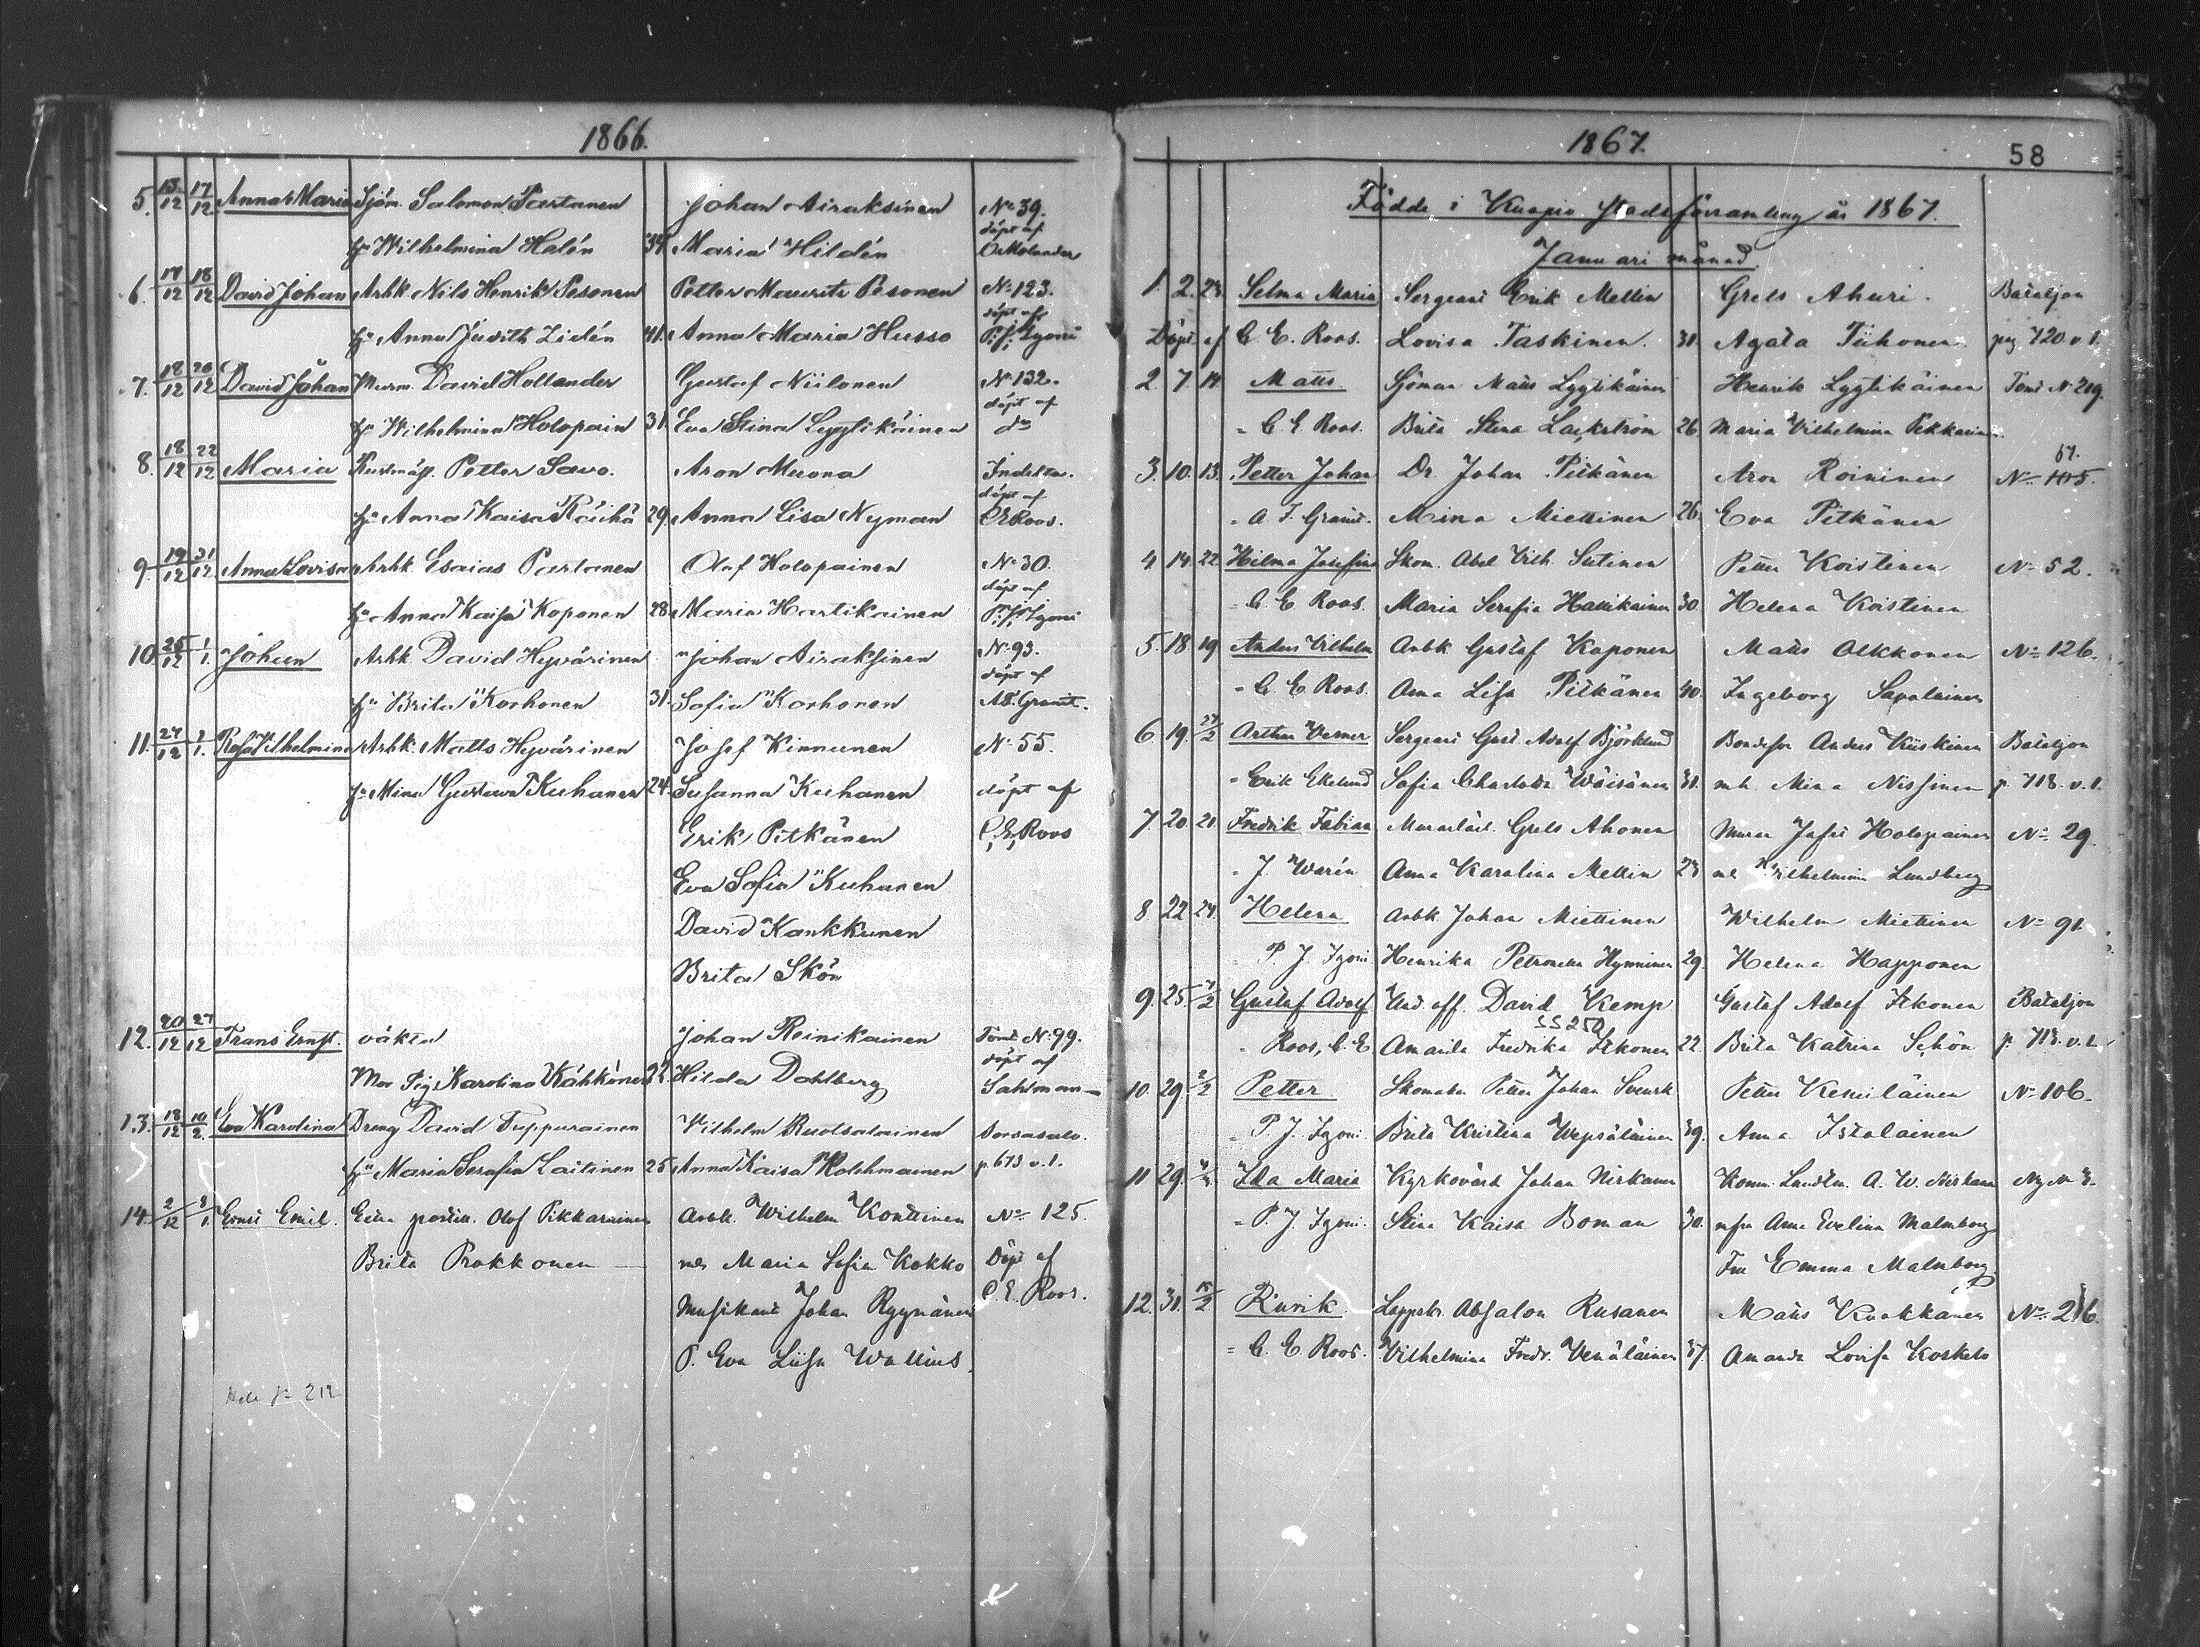 1866.
5. 13/12 17/12 Anna Maria Sjöm. Salomon Partanen Johan Airaksinen No 39.
hu Wilhelmina Halén 34. Maria Hildén döpt af
6. 17/12 18/12 David Johan Arbk Nils Henrik Pesonen Petter Maurits Pesonen No 123.
hu Anna Judith Lidén 41. Anna Maria Husso döpt af P. J. Lyoni
7. 18/12 20/12 David Johan Murm. David Hollander Gustaf Niilonen No 132.
hu Wilhelmina Holopain 31. Eva Stina Lyytikäinen döpt af do
8. 18/12 22/12 Maria Petter Savo. Aron Muona
hu Anna Kaisa Räihä 29. Anna Lisa Nyman döpt af C E Roos.
9. 19/12 31/12 Anna Lovisa Arbk Esaias Partanen Olof Holopainen No 30.
hu Anna Kaisa Koponen 28. Maria Hartikainen döpt af P. J. Lyoni
10. 25/12 1/1. Johan Arbk David Hyvärinen Johan Airaksinen No 93.
hu Brita Korhonen 31. Sofia Korhonen döpt af
11. 27/12 Rosa Vilhelmina Arbk. Matts Hyvärinen Josef Kinnunen No 55.
hu Mina Gustava Kuhanen 24. Susanna Kuhanen döpt af
Erik Pitkänen C. E. Roos
Eva Sofia Kuhanen
David Kankkunen
Brita Skön
12. 20/12 27/12 Frans Ernst. oäkta Johan Reinikainen Tomt No 99.
Mor Pig. Karolina Kähkönen 22. Hilda Dahlberg döpt af Sahlman
13. 18/12 10/2. Eva Karolina Dreng David Tuppurainen Vilhelm Ruotsalainen
hu Maria Serafia Laitinen 25. Anna Kaisa Holehmainen p. 673 v. 1.
14. 2/12 Ernst Emil. Olof Pikkarainen Arbk. Wilhelm Konttinen No 125.
Brita Prokkonen Maria Sofia Kokko Döpt af
Musikant Johan Ryynänen C. E. Roos.
P. Eva Liisa Wallius.
212
1867.
58
Födde i Kuopio stadsförsamling år 1867.
Januari månad.
1. 2. 23. Selma Maria Sergeant Erik Mellin Grels Ahuri. Bataljon
Döpt af C. E. Roos. Lovisa Taskinen. 31. Agata Tiihonen. pag 720 v. 1.
2. 7. 14 Matts Sjöman Matts Lyytikäinen Henrik Lyytikäinen Tomt No 219.
" C. E. Roos. Brita Stina Lackström 26. Maria Vilhelmina Pikkarainen.
3. 10. 13. Petter Johan Dr. Johan Pitkänen Aron Roininen No 105.
" A. F. Granit. Mina Miettinen 26. Eva Pitkänen
4. 14. 22. Hilma Josefina Skom. Abel Vilh. Sutinen Petter Koistinen No 52.
" C. E. Roos. Maria Serafia Hartikainen 30. Helena Koistinen
5. 18. 19 Anders Vilhelm Arbk Gustaf Koponen Matts Olkkonen No 126.
" C. E. Roos. Anna Lisa Pitkänen 40. Ingeborg Sapalainen
6. 19. 24/2 Arthur Verner Sergeant Gust. Adolf Björklund Bondeson Anders Kiiskinen Bataljon
" Erik Ekelund Sofia Charlotta Wäisänen 31. Mina Nissinen p. 718. v. 1.
7. 20. 21. Fredrik Fabian Grels Ahonen Murar Josef Holopainen No 29.
" J. Warén Anna Karolina Mellin 23 Wilhelmina Lundberg
8. 22. 24. Helena Arbk Johan Miettinen Wilhelm Miettinen No 91.
" P. J. Lyoni Henrika Petronella Hynninen 29. Helena Happonen
9. 25. Gustaf Adolf Und. off. David Kemp Gustaf Adolf Itkonen Bataljon
SS 250
" Roos, C. E. Amanda Fredrika Itkonen 22. Brita Katrina Schön p. 718. v. 1.
10. 29. 2/2 Petter Skomakr Petter Johan Svensk Petter Kemiläinen No 106.
" P. J. Lyoni. Brita Kristina Wepsäläinen 39. Anna Itälainen
11. 29. Ida Maria Kyrkovärd Johan Nirkanen A. W. Nirkanen
" P. J. Lyoni. Stina Kaisa Boman 30. Anna Evelina Malmborg
Fru Emma Malmborg.
12. 31. Rurik. Absalon Rusanen Matts Kuokkanen No 216.
" C. E. Roos. Vilhelmina Fredr. Venäläinen 37. Amanda Lovisa Koskelo